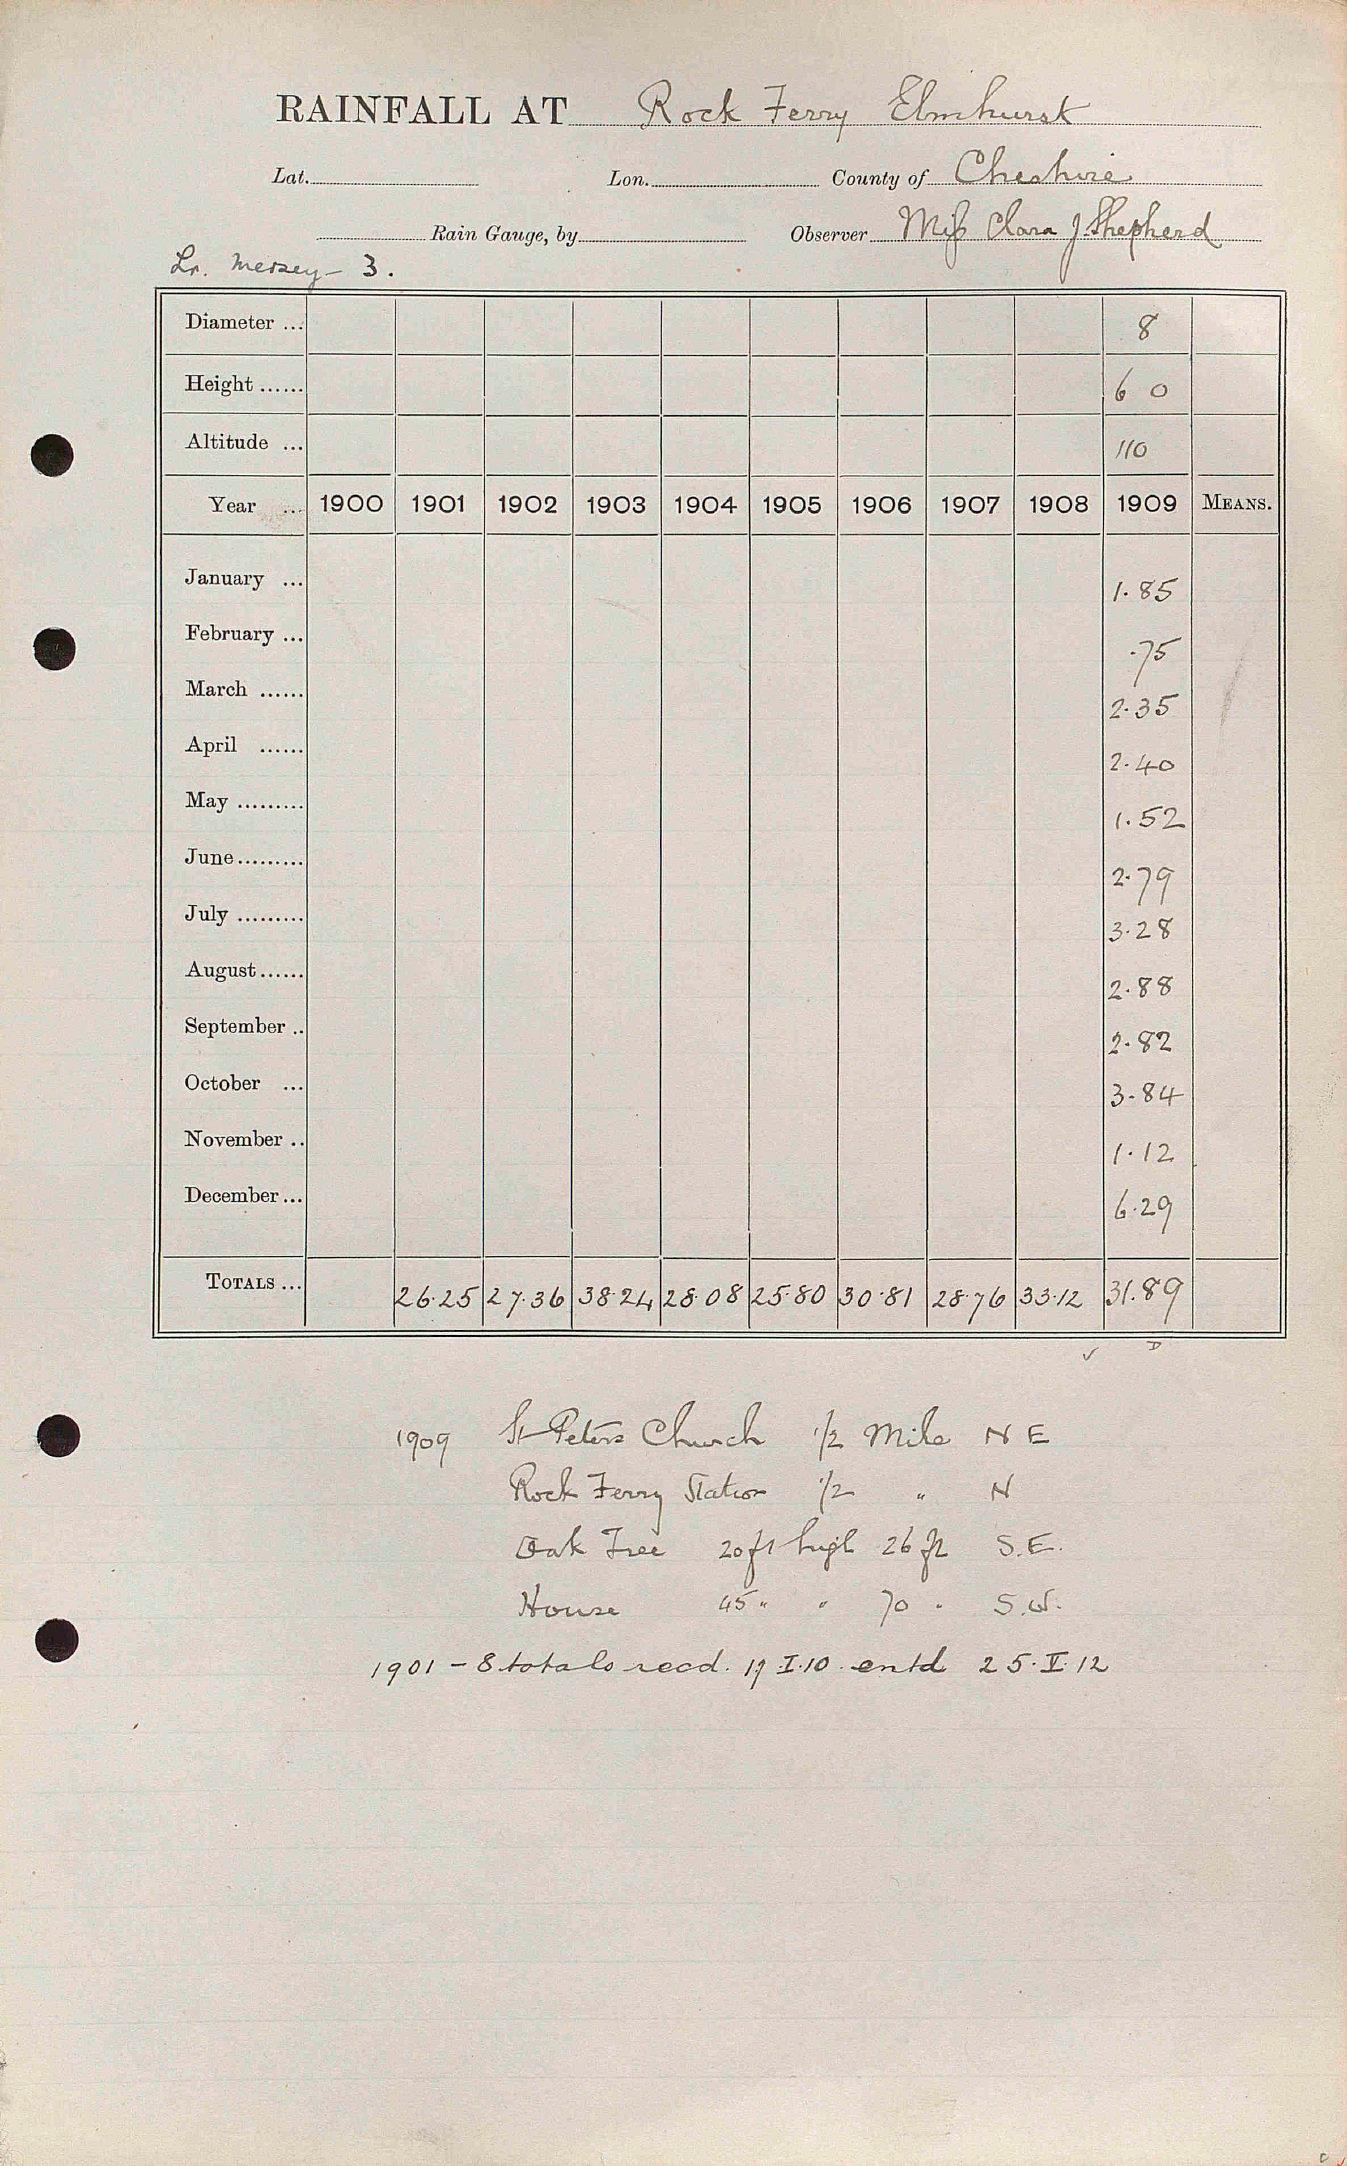 RAINFALL AT Rock Ferry Elmhurst
Lat. Lon. County of Cheshire
Rain Gauge, by Observer Miss Clara J. Shepherd
Lr. Mersey - 3.
Diameter ... 8
Height ...... 6 0
Altitude ... 110
Year ... 1900 1901 1902 1903 1904 1905 1906 1907 1908 1909 MEANS.
January ... 1.85
February ... .75
March ...... 2.35
April ...... 2.40
May ......... 1.52
June ......... 2.79
July ......... 3.28
August ...... 2.88
September .. 2.82
October ... 3.84
November .. 1.12
December ... 6.29
TOTALS ... 26.25 27.36 38.24 28.08 25.80 30.81 28.76 33.12 31.89
✓ D
1909 St Peters Church 1/2 Mile N E
Rock Ferry Station 1/2 " N
Oak Tree 20 ft high 26 ft S.E.
House 45 " " 70 " S.W.
1901 - 8 totals recd. 17.I.10. entd 25.V.12